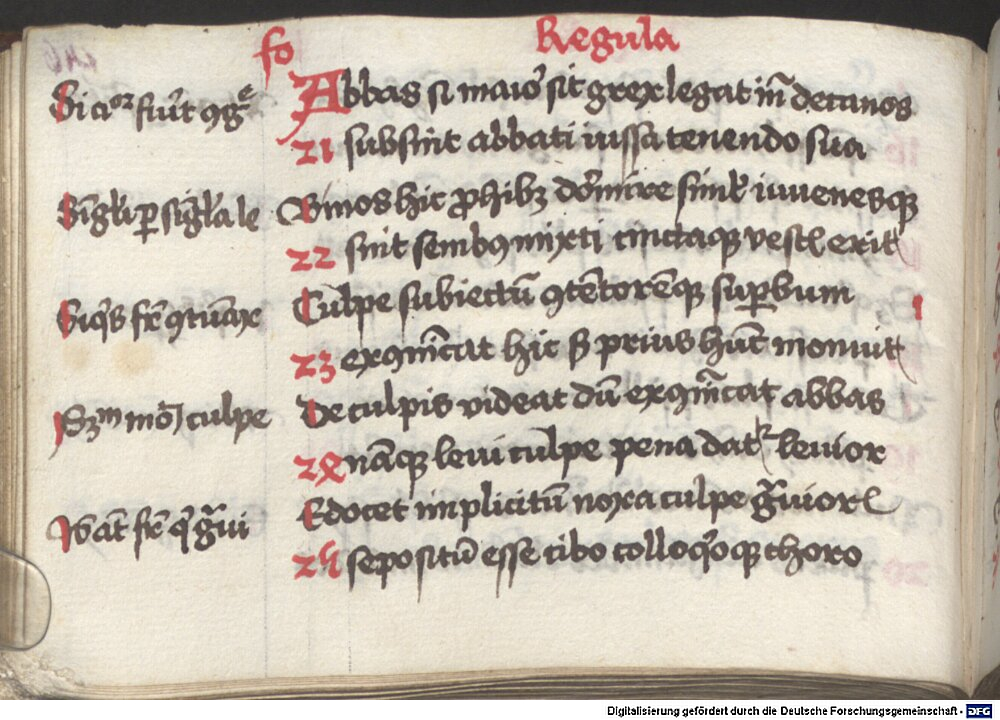 fo
Regula
Si aiͦr fiūt ꝯgͤ
Abbas si maiõ sit grex legat iñ decanos
21 subsint abbati iussa tenendo sua
Singl̃i ꝑ sigl̃a le
Binos hic ꝓhibꝫ dormire simł iuuenesqꝫ
22 sint senibꝯ mixti cinctaqꝫ vest exit
Siqͥs fr̄ ꝯtumax
Culpe subiectū ꝯtētorēqꝫ suꝑbum
23 exꝯm̄icat hic ſꝫ prius hūc monuit
Sꝫm mo culpe
De culpis videat dū exꝯm̄icat abbas
24 nāqꝫ leui culpe pena dat leuior
Is aūt fr̄ qͥ gͣui
Edocet implicitū noxa culpe gͣuiori
25 sepositū esse cibo colloqͦqꝫ thoro
Digitalisierung gefördert durch die Deutsche Forschungsgemeinschaft - DFG